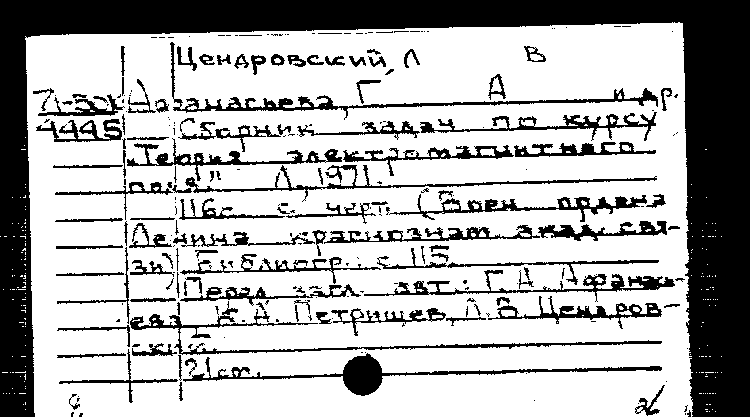 Цендровский, Л В
71-5ДК Афанасьева, Г А и др.
4445 Сборник задач по курсу
„Теория электромагнитного
поля." Л., 1971.
116с. с черт. (Воен. ордена
Ленина краснознам. акад. свя-
зи) Библиогр.: с. 115.
Перед загл. авт.: Г. А. Афанась-
ева, К. А. Петрищев, Л. В. Цендров-
ский.
21 см.